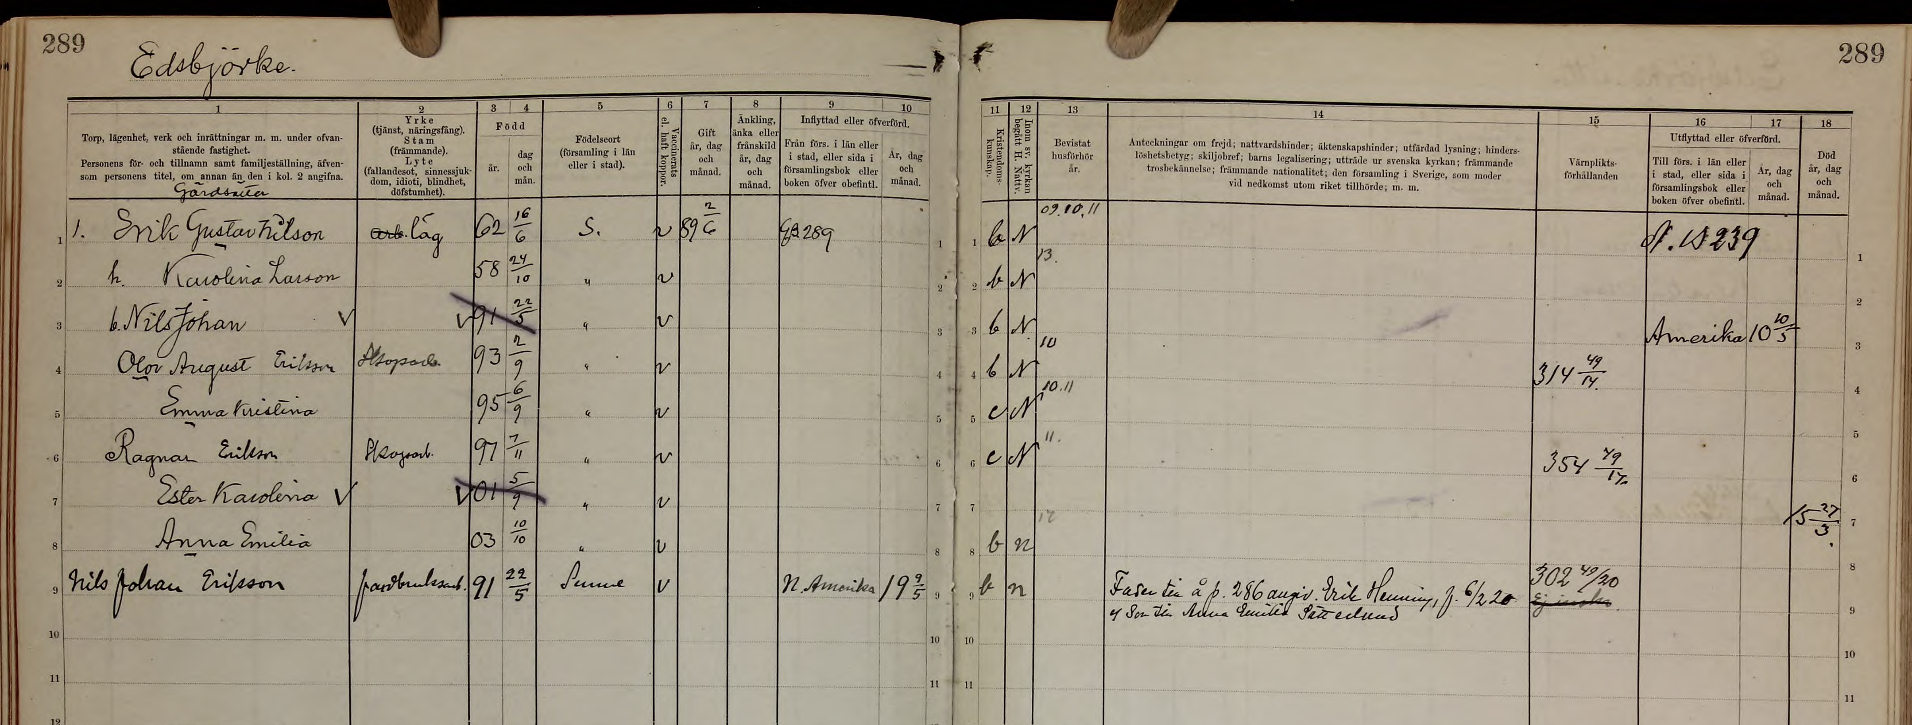 289
289
Edsbjörke.
1 2 3 4 5 6 7 8 9 10 11 12 13 14 15 16 17 18
Torp, lägenhet, verk och inrättningar m. m. under ofvanstående fastighet.
Personens för- och tillnamn samt familjeställning, äfvensom personens titel, om annan än den i kol. 2 angifna.
Yrke (tjänst, näringsfång). Stam (främmande). Lyte (fallandesot, sinnessjukdom, idioti, blindhet, döfstumhet).
Född
år.
dag och mån.
Födelseort (församling i län eller i stad).
Vaccinerats el. haft koppor.
Gift år, dag och månad.
Änkling, änka eller frånskild år, dag och månad.
Inflyttad eller öfverförd.
Från förs. i län eller i stad, eller sida i församlingsbok eller boken öfver obefintl.
År, dag och månad.
Kristendomskunskap.
Inom sv. kyrkan begått H. Nattv.
Bevistat husförhör år.
Anteckningar om frejd; nattvardshinder; äktenskapshinder; utfärdad lysning; hinderslöshetsbetyg; skiljobref; barns legalisering; utträde ur svenska kyrkan; främmande trosbekännelse; främmande nationalitet; den församling i Sverige, som moder vid nedkomst utom riket tillhörde; m. m.
Värnpliktsförhållanden
Utflyttad eller öfverförd.
Till förs. i län eller i stad, eller sida i församlingsbok eller boken öfver obefintl.
År, dag och månad.
Död år, dag och månad.
1 1. Erik Gustav Nilson arb. läg 62 16/6 S. v 89 2/6 289 1 1 b N 09.10.11 239 1
2 h. Karolina Larson 58 24/10 " v 2 2 b N 13. 2
3 b. Nils Johan V V 91 22/5 " v 3 3 b N Amerika 10 10/5 3
4 Olov August Erikson Skogsarb. 93 2/9 " v 4 4 b N 10 314 49/14. 4
5 Emma Kristina 95 6/9 " v 5 5 c N 10.11 5
6 Ragnar Erikson Skogsarb. 97 7/11 " v 6 6 c N 11. 354 49/17. 6
7 Ester Karolina V V 01 5/9 " v 7 7 15 27/3. 7
8 Anna Emilia 03 10/10 " v 8 8 b n 8
9 Nils Johan Eriksson jordbruksarb. 91 22/5 Sunne v N. Amerika 19 9/5 9 9 b n Fader till å p. 286 angiv. Erik Henning, f. 6/2 20 302 49/20 9
Anna Emilia
10 10 10
11 11 11 11
12